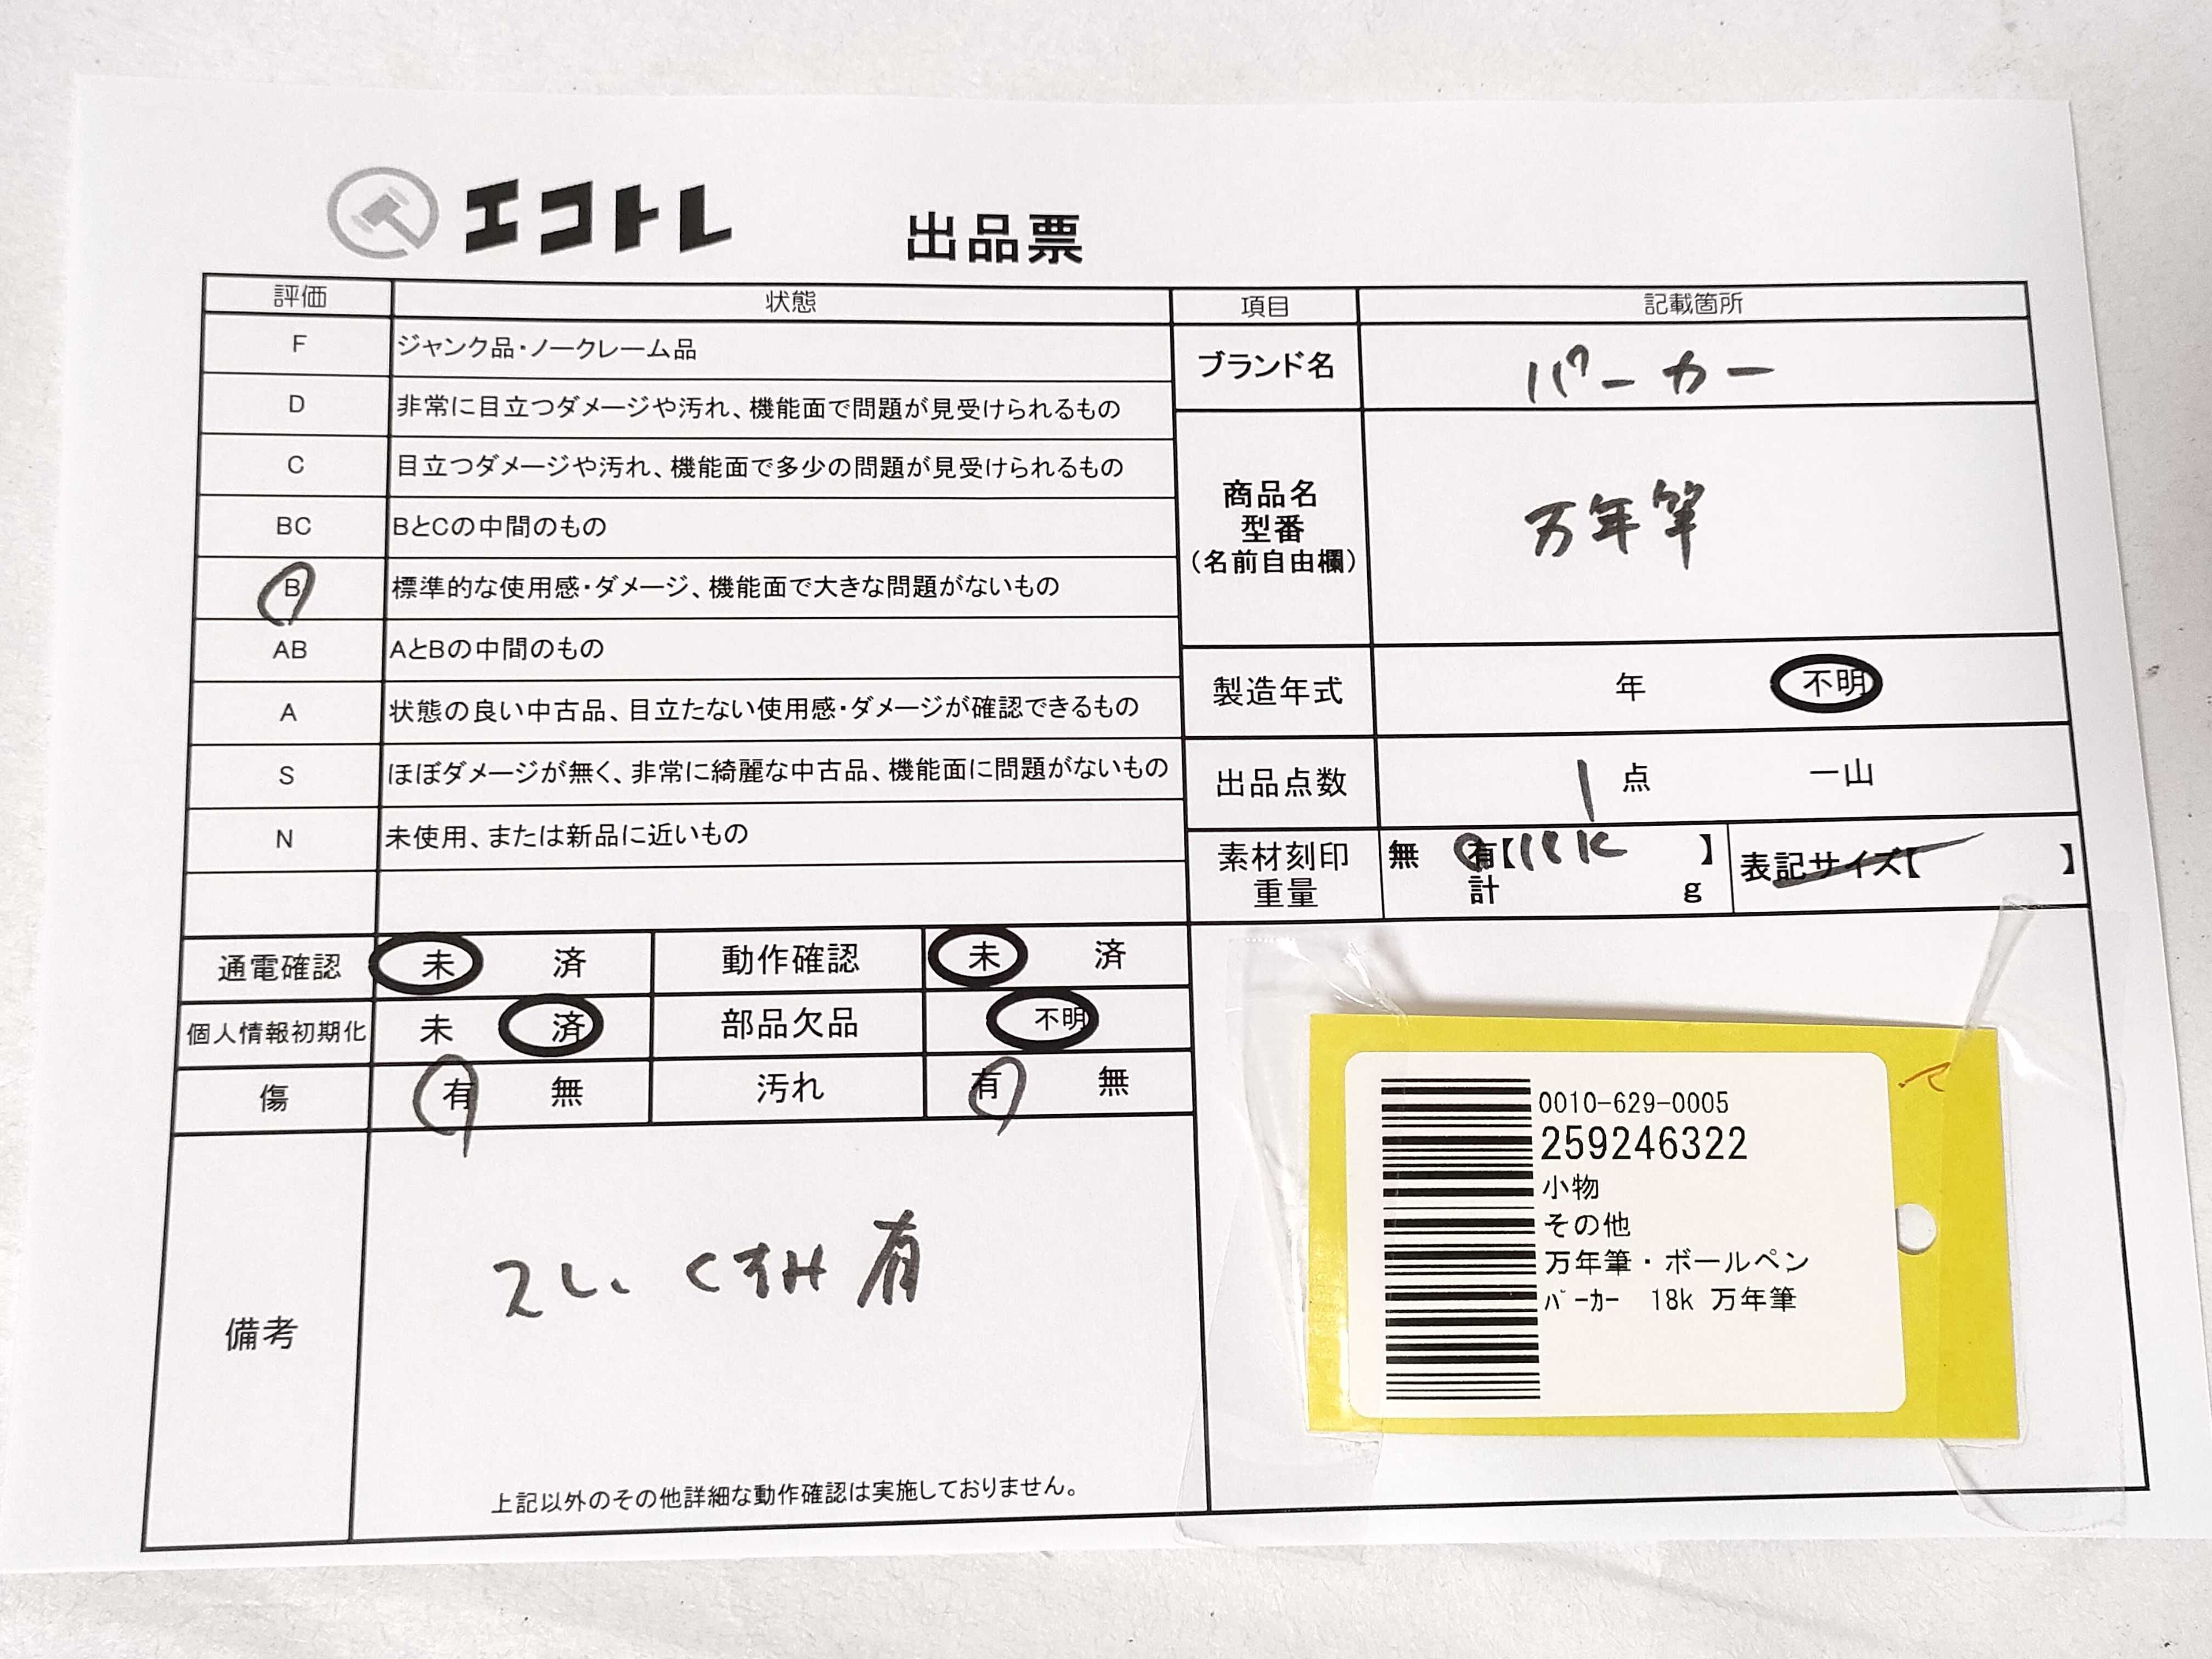 エコトレ 出品票
評価 状態
F ジャンク品・ノークレーム品
D 非常に目立つダメージや汚れ、機能面で問題が見受けられるもの
C 目立つダメージや汚れ、機能面で多少の問題が見受けられるもの
BC BとCの中間のもの
B 標準的な使用感・ダメージ、機能面で大きな問題がないもの
AB AとBの中間のもの
A 状態の良い中古品、目立たない使用感・ダメージが確認できるもの
S ほぼダメージが無く、非常に綺麗な中古品、機能面に問題がないもの
N 未使用、または新品に近いもの
項目 記載箇所
ブランド名 パーカー
商品名
型番
(名前自由欄)
万年筆
製造年式 年 不明
出品点数 1 点 一山
素材刻印 無 有【18K 】 表記サイズ【 】
重量 計 g
通電確認 未 済 動作確認 未 済
個人情報初期化 未 済 部品欠品 不明
傷 有 無 汚れ 有 無
備考
スレ、くすみ有
上記以外のその他詳細な動作確認は実施しておりません。
0010-629-0005
259246322
小物
その他
万年筆・ボールペン
ﾊﾟｰｶｰ 18k 万年筆